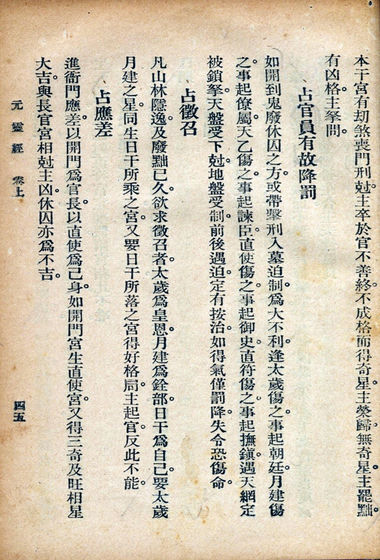 本干宮有刧煞喪門刑尅主卒於官不善終。不成格而得奇星主榮歸無奇星主罷黜。
有凶格主拏問。
占官員有故降罰
如開到鬼廢休囚之方或帶擊刑入墓迫制爲大不利逢太歲傷之事起朝廷月建傷
之事起僚屬天乙傷之事起諫臣直使傷之事起御史直符傷之事起撫鎮遇天網定
被鎖拏天盤受下尅地盤受制前後遇迫定有按治如得氣僅罰降失令恐傷命。
占徵召
凡山林隱逸及廢黜已久欲求徵召者太歲爲皇恩月建爲銓部日干爲自己要太歲
月建之星同生日干所乘之宮又要日干所落之宮得好格局主起官反此不能。
占應差
進衙門應差以開門爲官長以直使爲己身如開門宮生直使宮又得三奇及旺相星
大吉與長官宮相尅主凶休囚亦爲不吉。
元靈經 卷上
四五